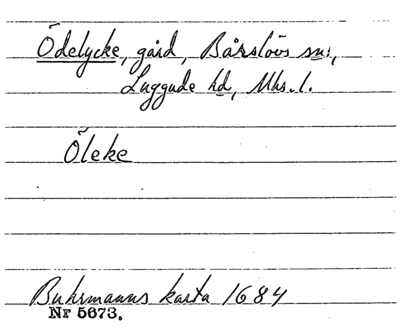 Ödelycke, gård, Bårslövs sn.,
Luggude hd, Mhs. l.
Öleke
Buhrmanns karta 1684
Nr 5673.